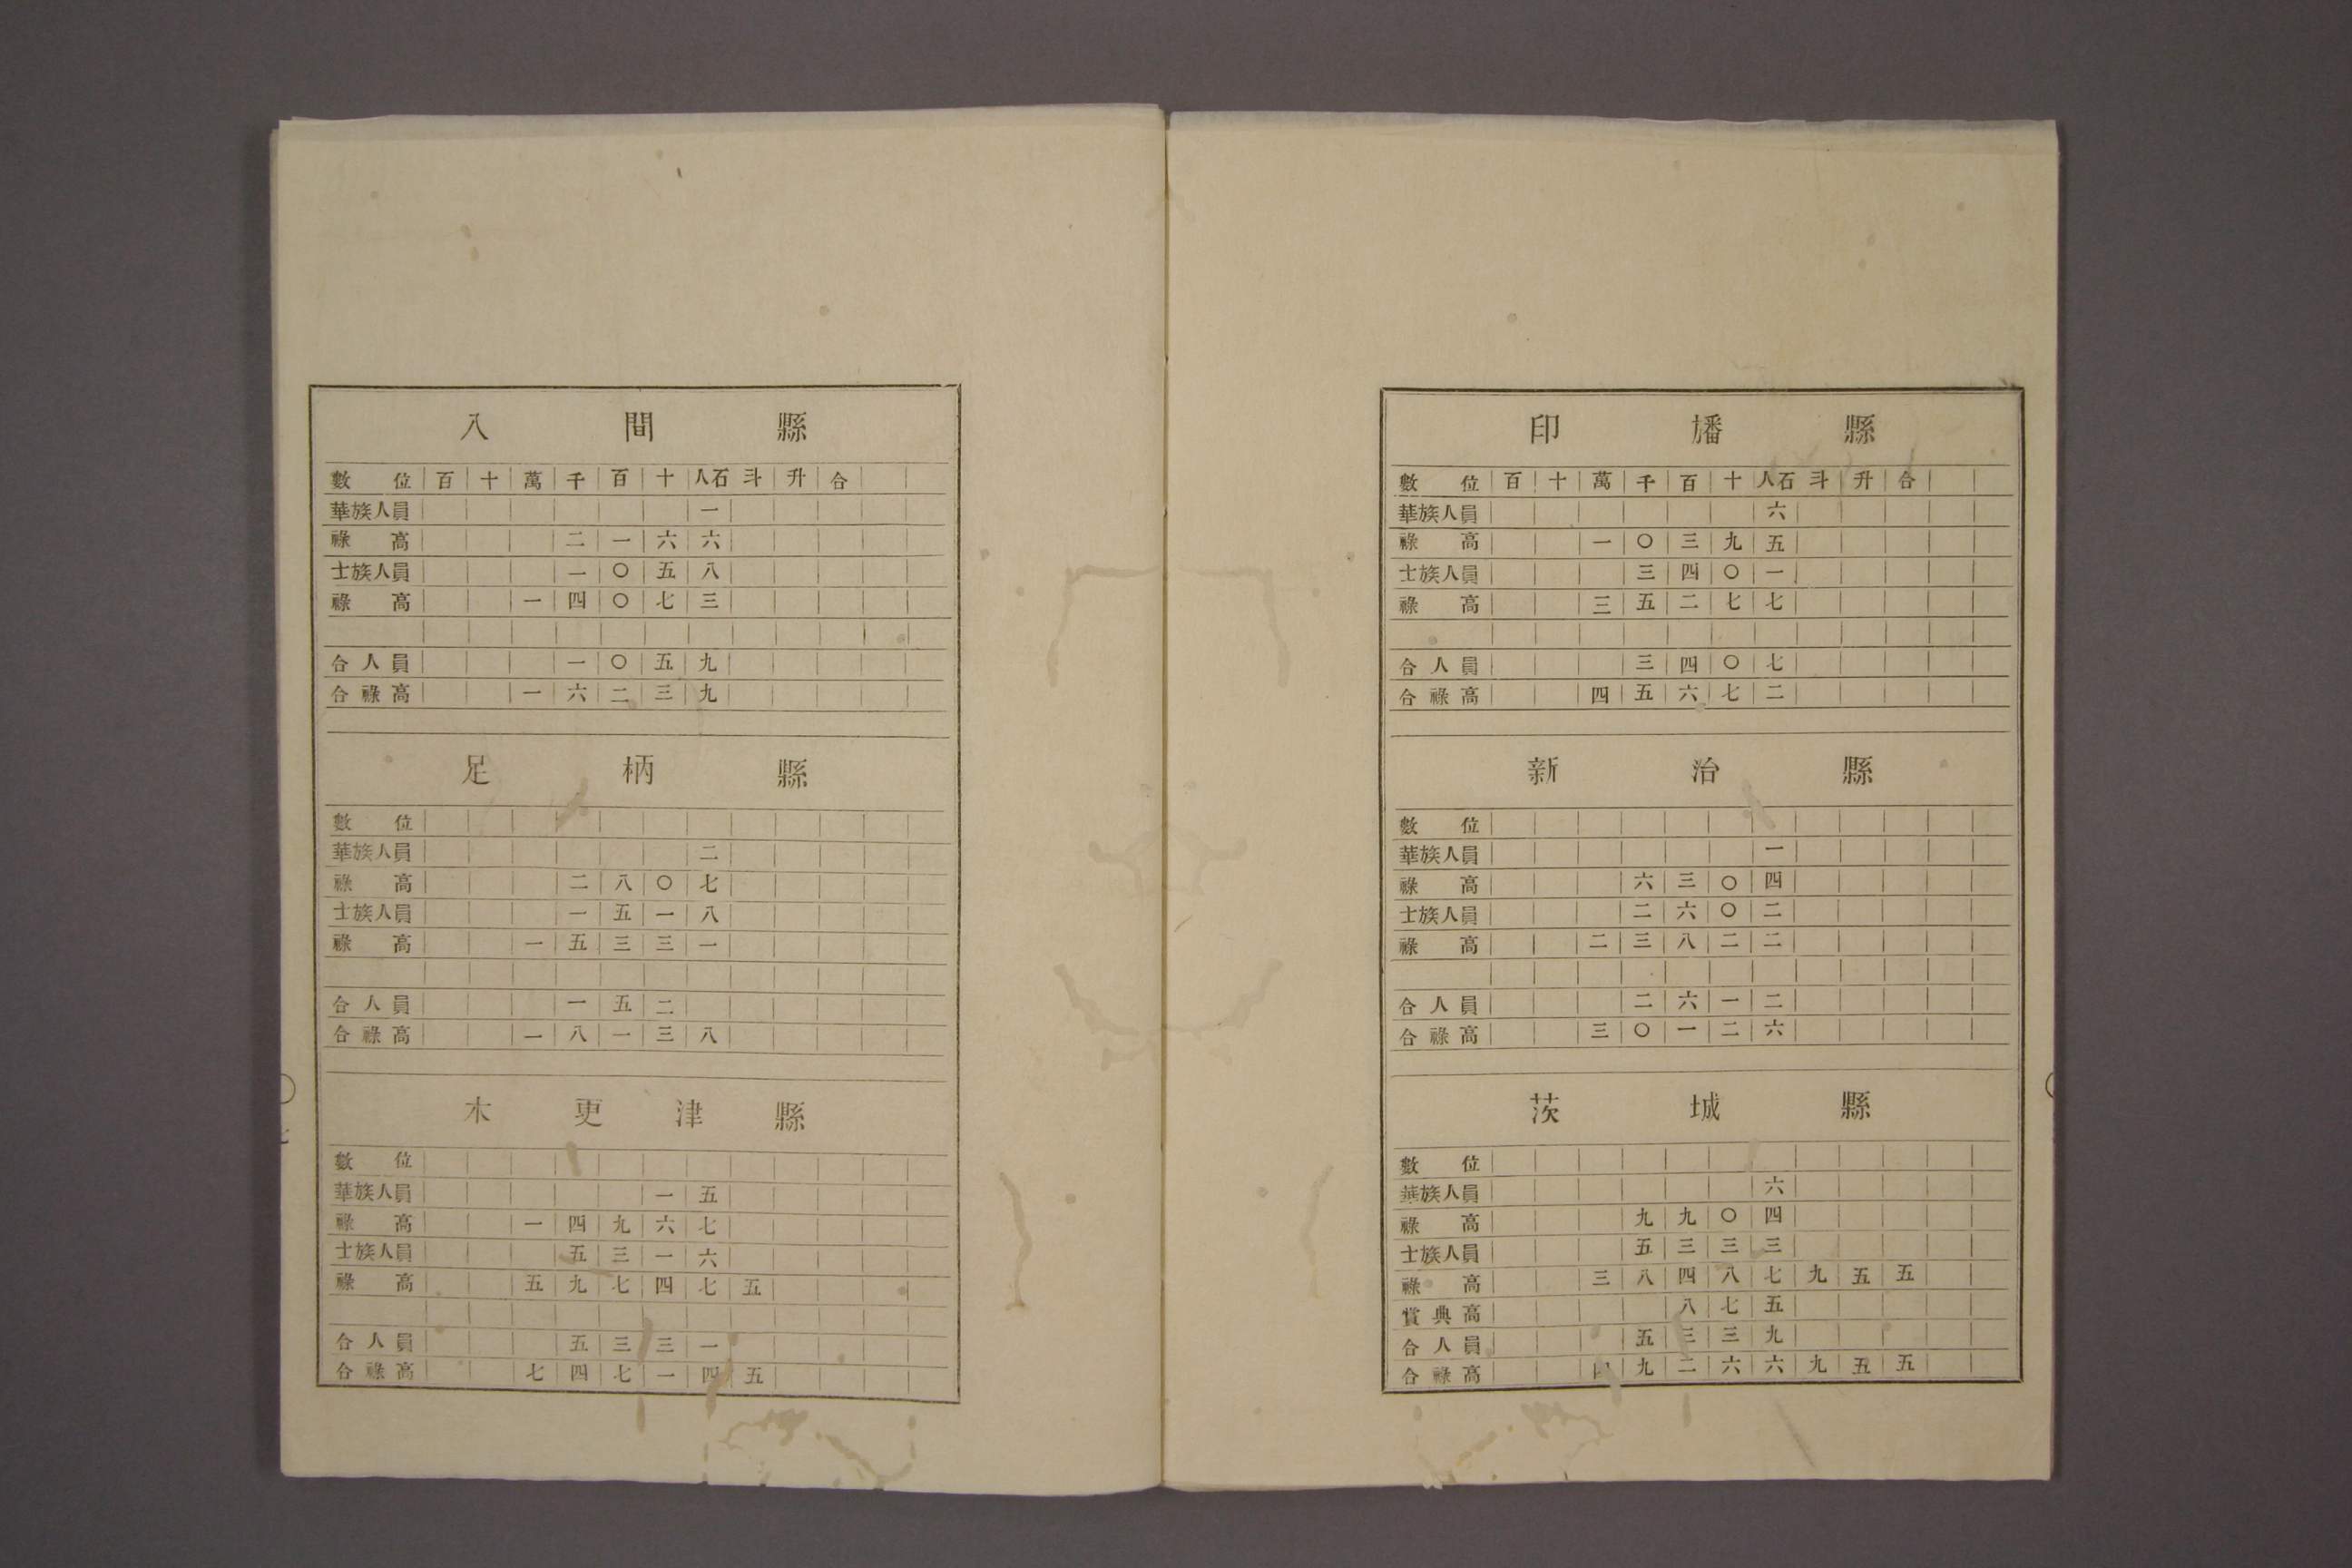 印旛縣
數位百十萬千百十人石斗升合
華族人員六
祿高一〇三九五
士族人員三四〇一
祿高三五二七七
合人員三四〇七
合祿高四五六七二
新治縣
數位
華族人員一
祿高六三〇四
士族人員二六〇二
祿高二三八二二
合人員二六一二
合祿高三〇一二六
茨城縣
數位
華族人員六
祿高九九〇四
士族人員五三三三
祿高三八四八七九五五
賞典高八七五
合人員五三三九
合祿高四九二六六九五五
入間縣
數位百十萬千百十人石斗升合
華族人員一
祿高二一六六
士族人員一〇五八
祿高一四〇七三
合人員一〇五九
合祿高一六二三九
足柄縣
數位
華族人員二
祿高二八〇七
士族人員一五一八
祿高一五三三一
合人員一五二
合祿高一八一三八
木更津縣
數位
華族人員一五
祿高一四九六七
士族人員五三一六
祿高五九七四七五
合人員五三三一
合祿高七四七一四五